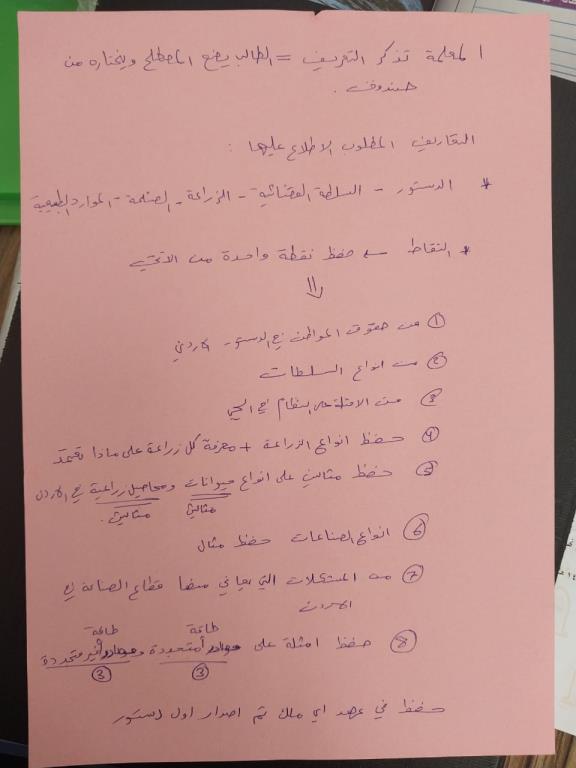 المعلمة تذكر التعريف = الطالب يضع المصطلح ويختاره من
صندوق .
التعاريف المطلوب الاطلاع عليها :
* الدستور - السلطة القضائية - الزراعة - الصناعة - الموارد الطبيعية
* النقاط ← حفظ نقطة واحدة من الآتي
⇓
① من حقوق المواطن في الدستور الأردني
② من أنواع السلطات
③ من الامثلة على النظام في الحي
④ حفظ انواع الزراعة + معرفة كل زراعة على ماذا تعتمد
⑤ حفظ مثالين على انواع حيوانات ومحاصيل زراعية في الاردن
مثالين مثالين .
⑥ انواع الصناعات حفظ مثال
⑦ من المشكلات التي يعاني منها قطاع الصناعة في
الاردن
طاقة طاقة
⑧ حفظ امثلة على متجددة وغير متجددة
③ ③
حفظ في عهد اي ملك تم اصدار اول دستور